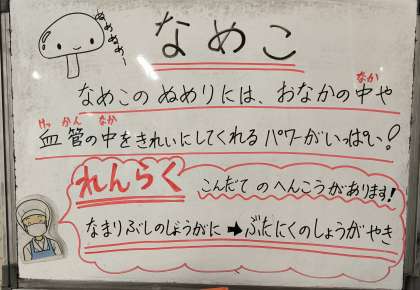 ぬめぬめ〜
なめこ
なめこのぬめりには、おなかの中や
なか
血管の中をきれいにしてくれるパワーがいっぱい!
けっかん なか
れんらく
こんだてのへんこうがあります!
なまりぶしのしょうがに➡ぶたにくのしょうがやき